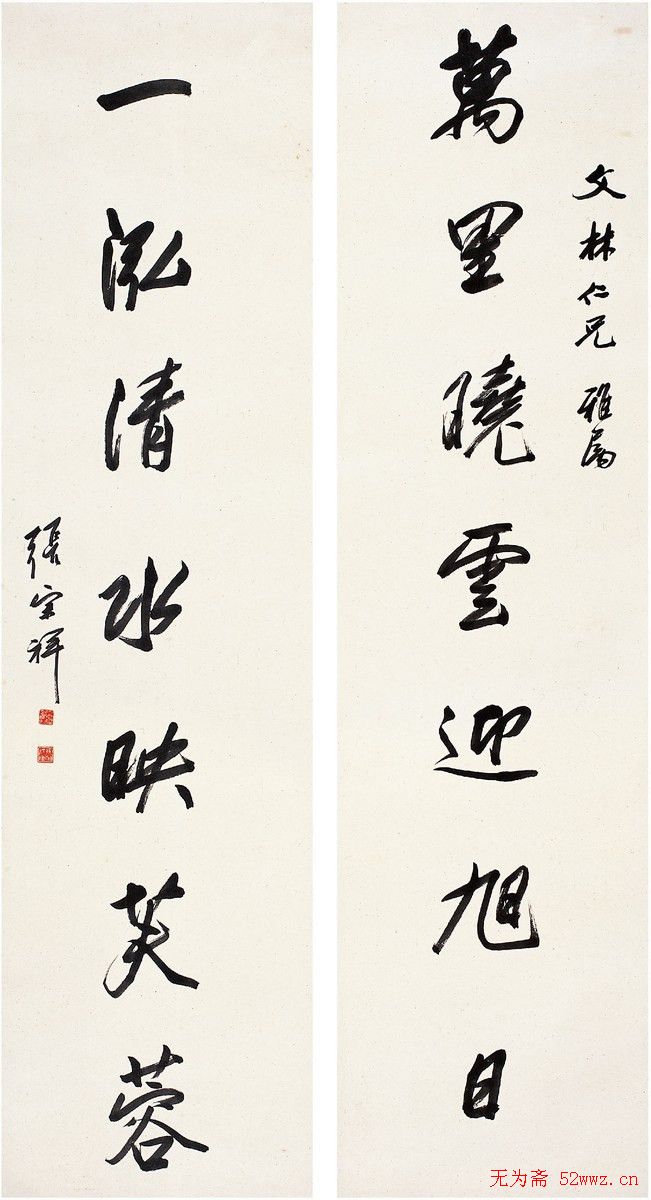 文林仁兄 雅属
萬里曉雲迎旭日
一泓清水映芙蓉
張宗祥
无为斋 52wwz.cn